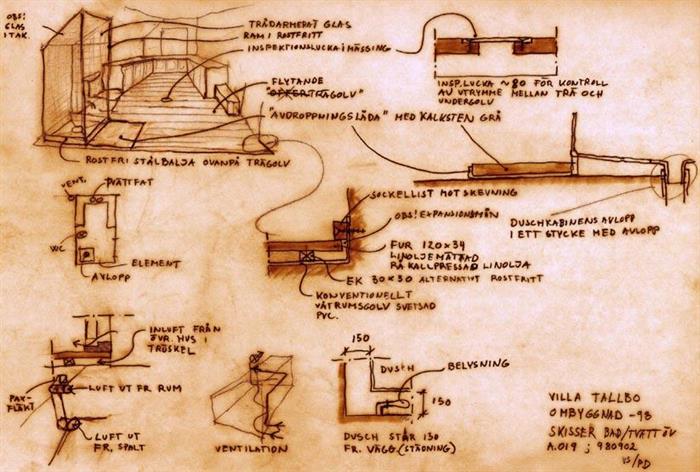 OBS!
GLAS
I TAK.
TRÅDARMERAT GLAS
RAM I ROSTFRITT
INSPEKTIONSLUCKA I MÄSSING
FLYTANDE
"AVDROPPNINGSLÅDA" MED KALKSTEN GRÅ
ROSTFRI STÅLBALJA OVANPÅ TRÄGOLV
INSP. LUCKA ~80 FÖR KONTROLL
AV UTRYMME MELLAN TRÄ OCH
UNDERGOLV
VENT.
TVÄTTFAT
WC
ELEMENT
AVLOPP
SOCKELLIST MOT SKEVNING
OBS! EXPANSIONSMÅN
FUR 120x34
LINOLJEMÄTTAD
RÅ KALLPRESSAD LINOLJA
EK 30x30 ALTERNATIVT ROSTFRITT
KONVENTIONELLT
VÅTRUMSGOLV SVETSAD
PVC.
DUSCHKABINENS AVLOPP
I ETT STYCKE MED AVLOPP
INLUFT FRÅN
ÖVR. HUS I
TRÖSKEL
PAX-
FLÄKT
LUFT UT FR. RUM
LUFT UT
FR. SPALT
VENTILATION
150
DUSCH
BELYSNING
150
DUSCH STÅR 130
FR. VÄGG. (STÄDNING)
VILLA TALLBO
OMBYGGNAD -98
SKISSER BAD/TVÄTT ÖV
A.019 ; 980902
VS/PD